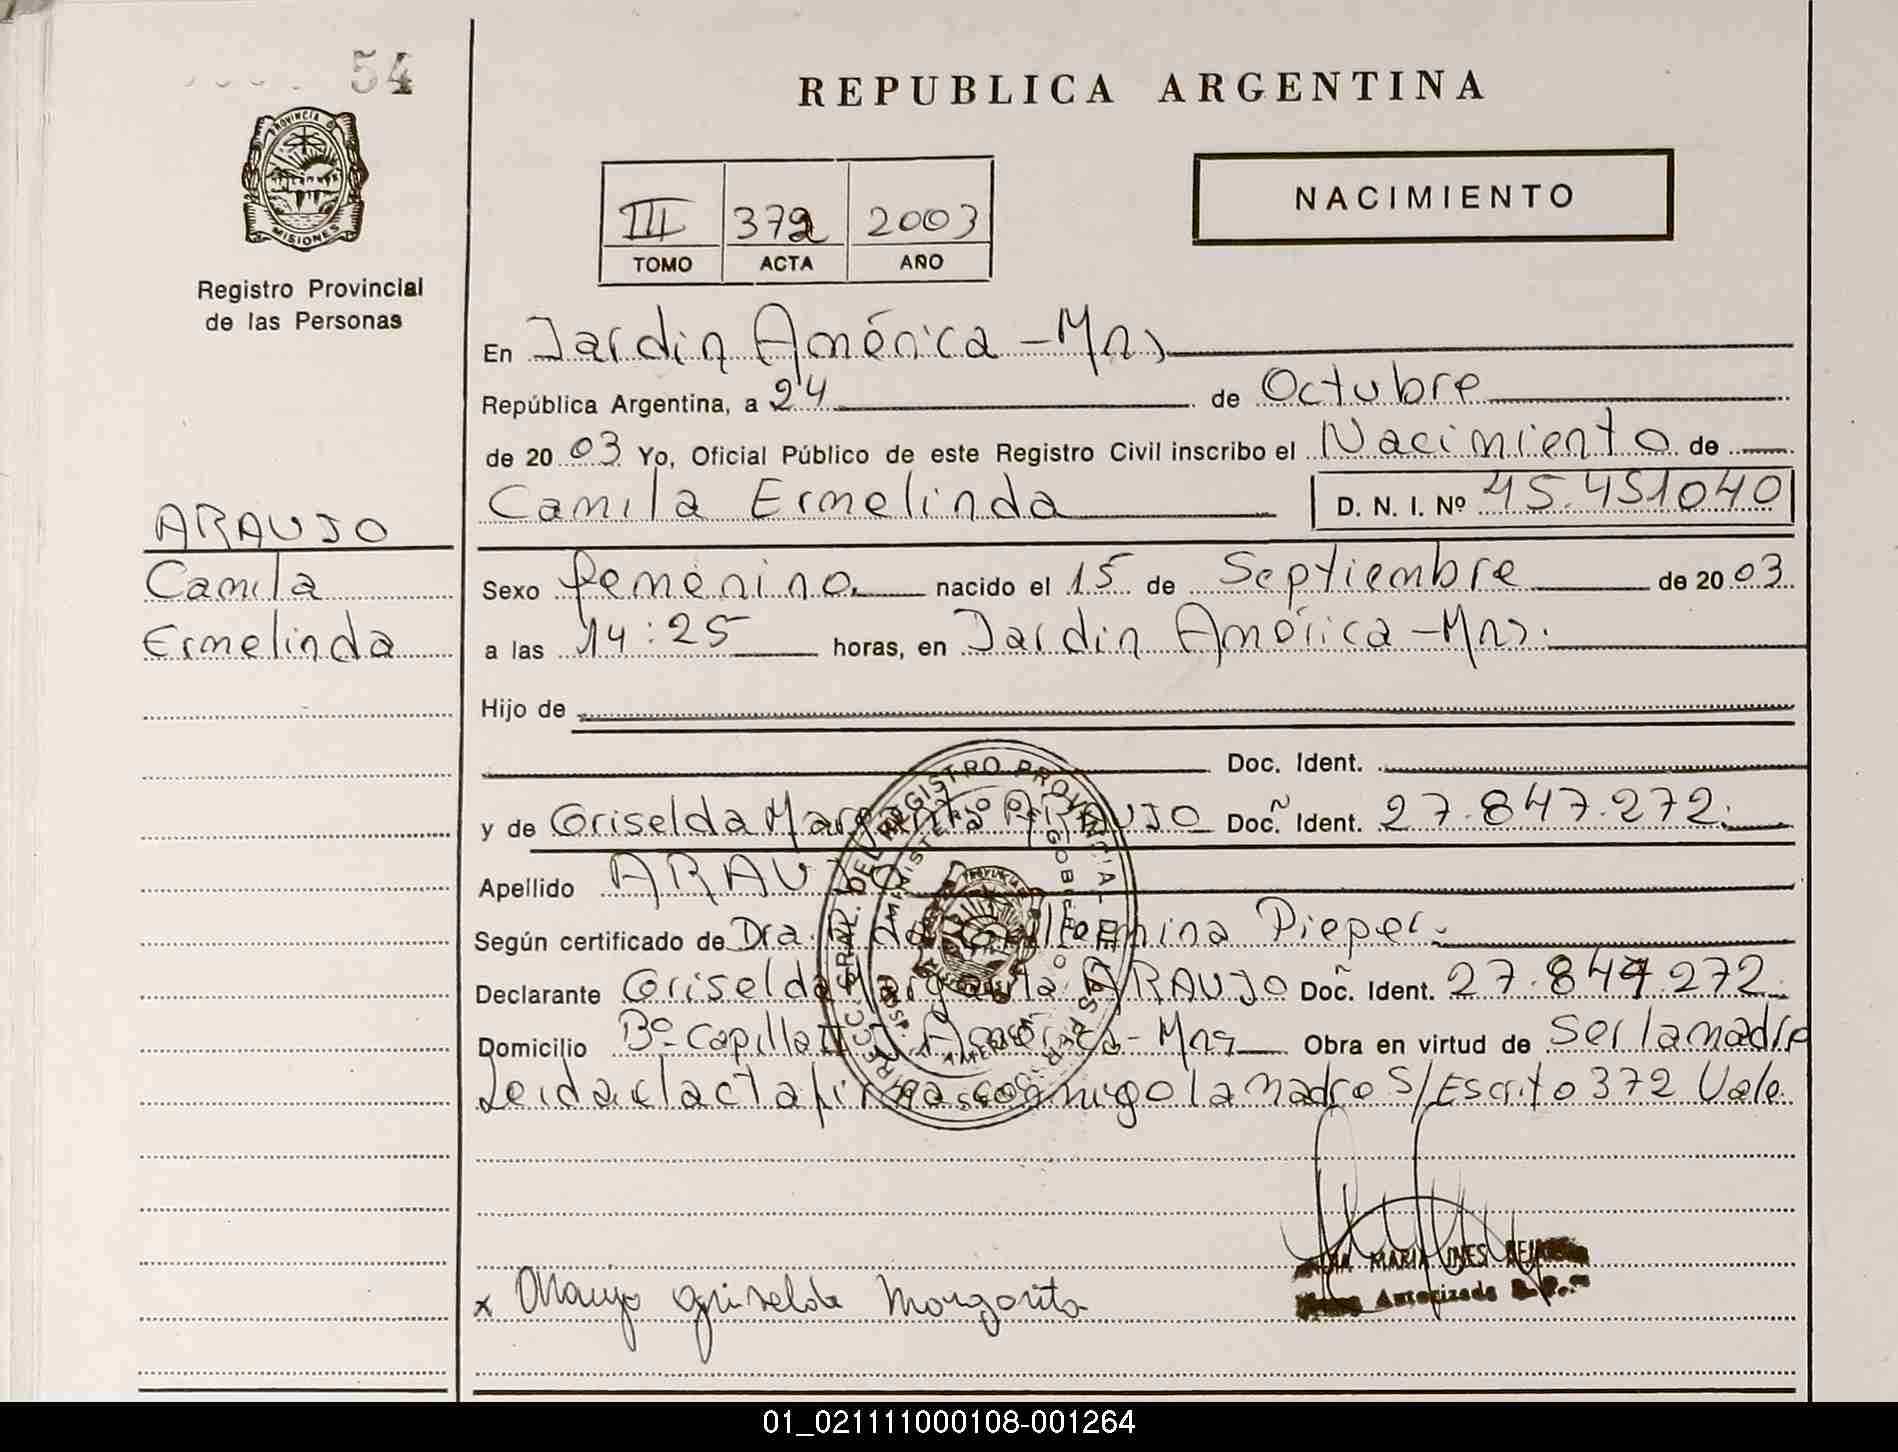 54
REPUBLICA ARGENTINA
PROVINCIA D
MISIONES
Registro Provincial
de las Personas
III 372 2003
TOMO ACTA AÑO
NACIMIENTO
En Jardin América - Mns
República Argentina, a 24 de Octubre
de 20 03 Yo, Oficial Público de este Registro Civil inscribo el Nacimiento de
Camila Ermelinda D. N. I. Nº 45.451040
ARAUJO
Camila
Ermelinda
Sexo femenino. nacido el 15 de Septiembre de 20 03
a las 14:25 horas, en Jardin América - Mns.
Hijo de
Doc. Ident.
y de Griselda Margarita ARAUJO Doc. Ident. 27.847.272.
Apellido ARAUJO
Según certificado de Dra. Guillermina Pieper.
Declarante Griselda Margarita ARAUJO Doc. Ident. 27.847.272
Domicilio Bº Capilla II J. América - Mns Obra en virtud de Ser la madre
Leida el acta firma conmigo la madre S/Escrito 372 Vale.
DIRECC. GRAL. DEL REGISTRO PROVINCIAL DE LAS PERSONAS
MINISTERIO DE GOBIERNO
x Araujo Griselda Margarita
MARIA INES
Autorizada
01_021111000108-001264